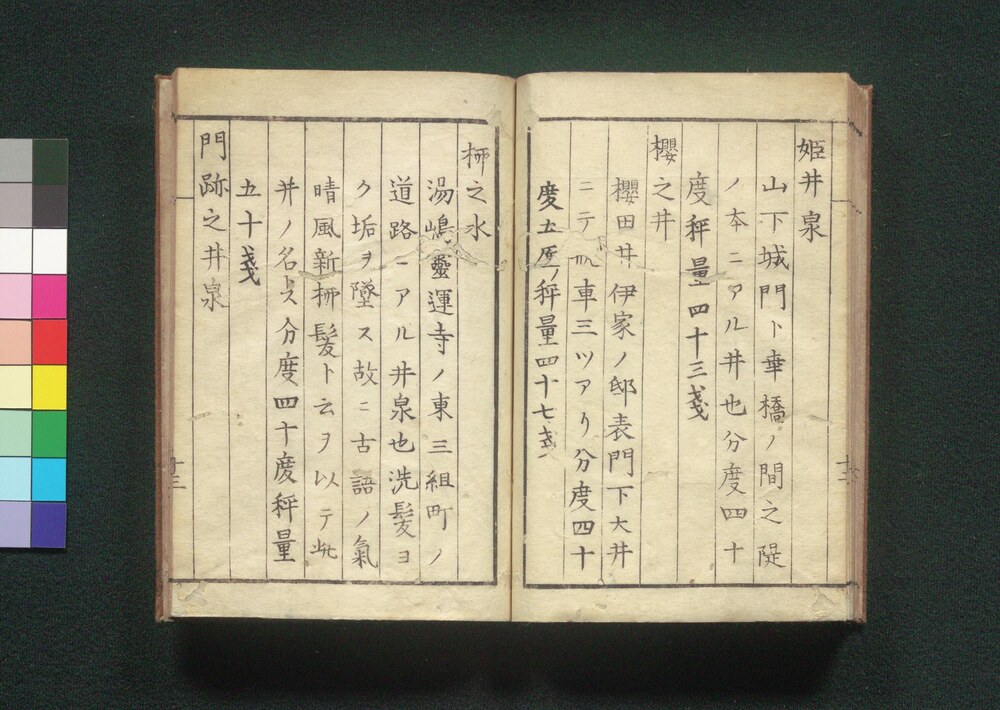 姫井泉
山下城門ト幸橋ノ間之隄
ノ本ニアル井也分度四十
度秤量四十三戔
櫻之井
櫻田井伊家ノ邸表門下大井
ニテ 車三ツアリ分度四十
度五厘秤量四十七戔
柳之水
湯嶋靈運寺ノ東三組町ノ
道路ニアル井泉也洗髪ヨ
ク垢ヲ墜ス故ニ古語ノ氣
晴風新柳髪ト云ヲ以テ此
井ノ名トス分度四十度秤量
五十戔
門跡之井泉
十三